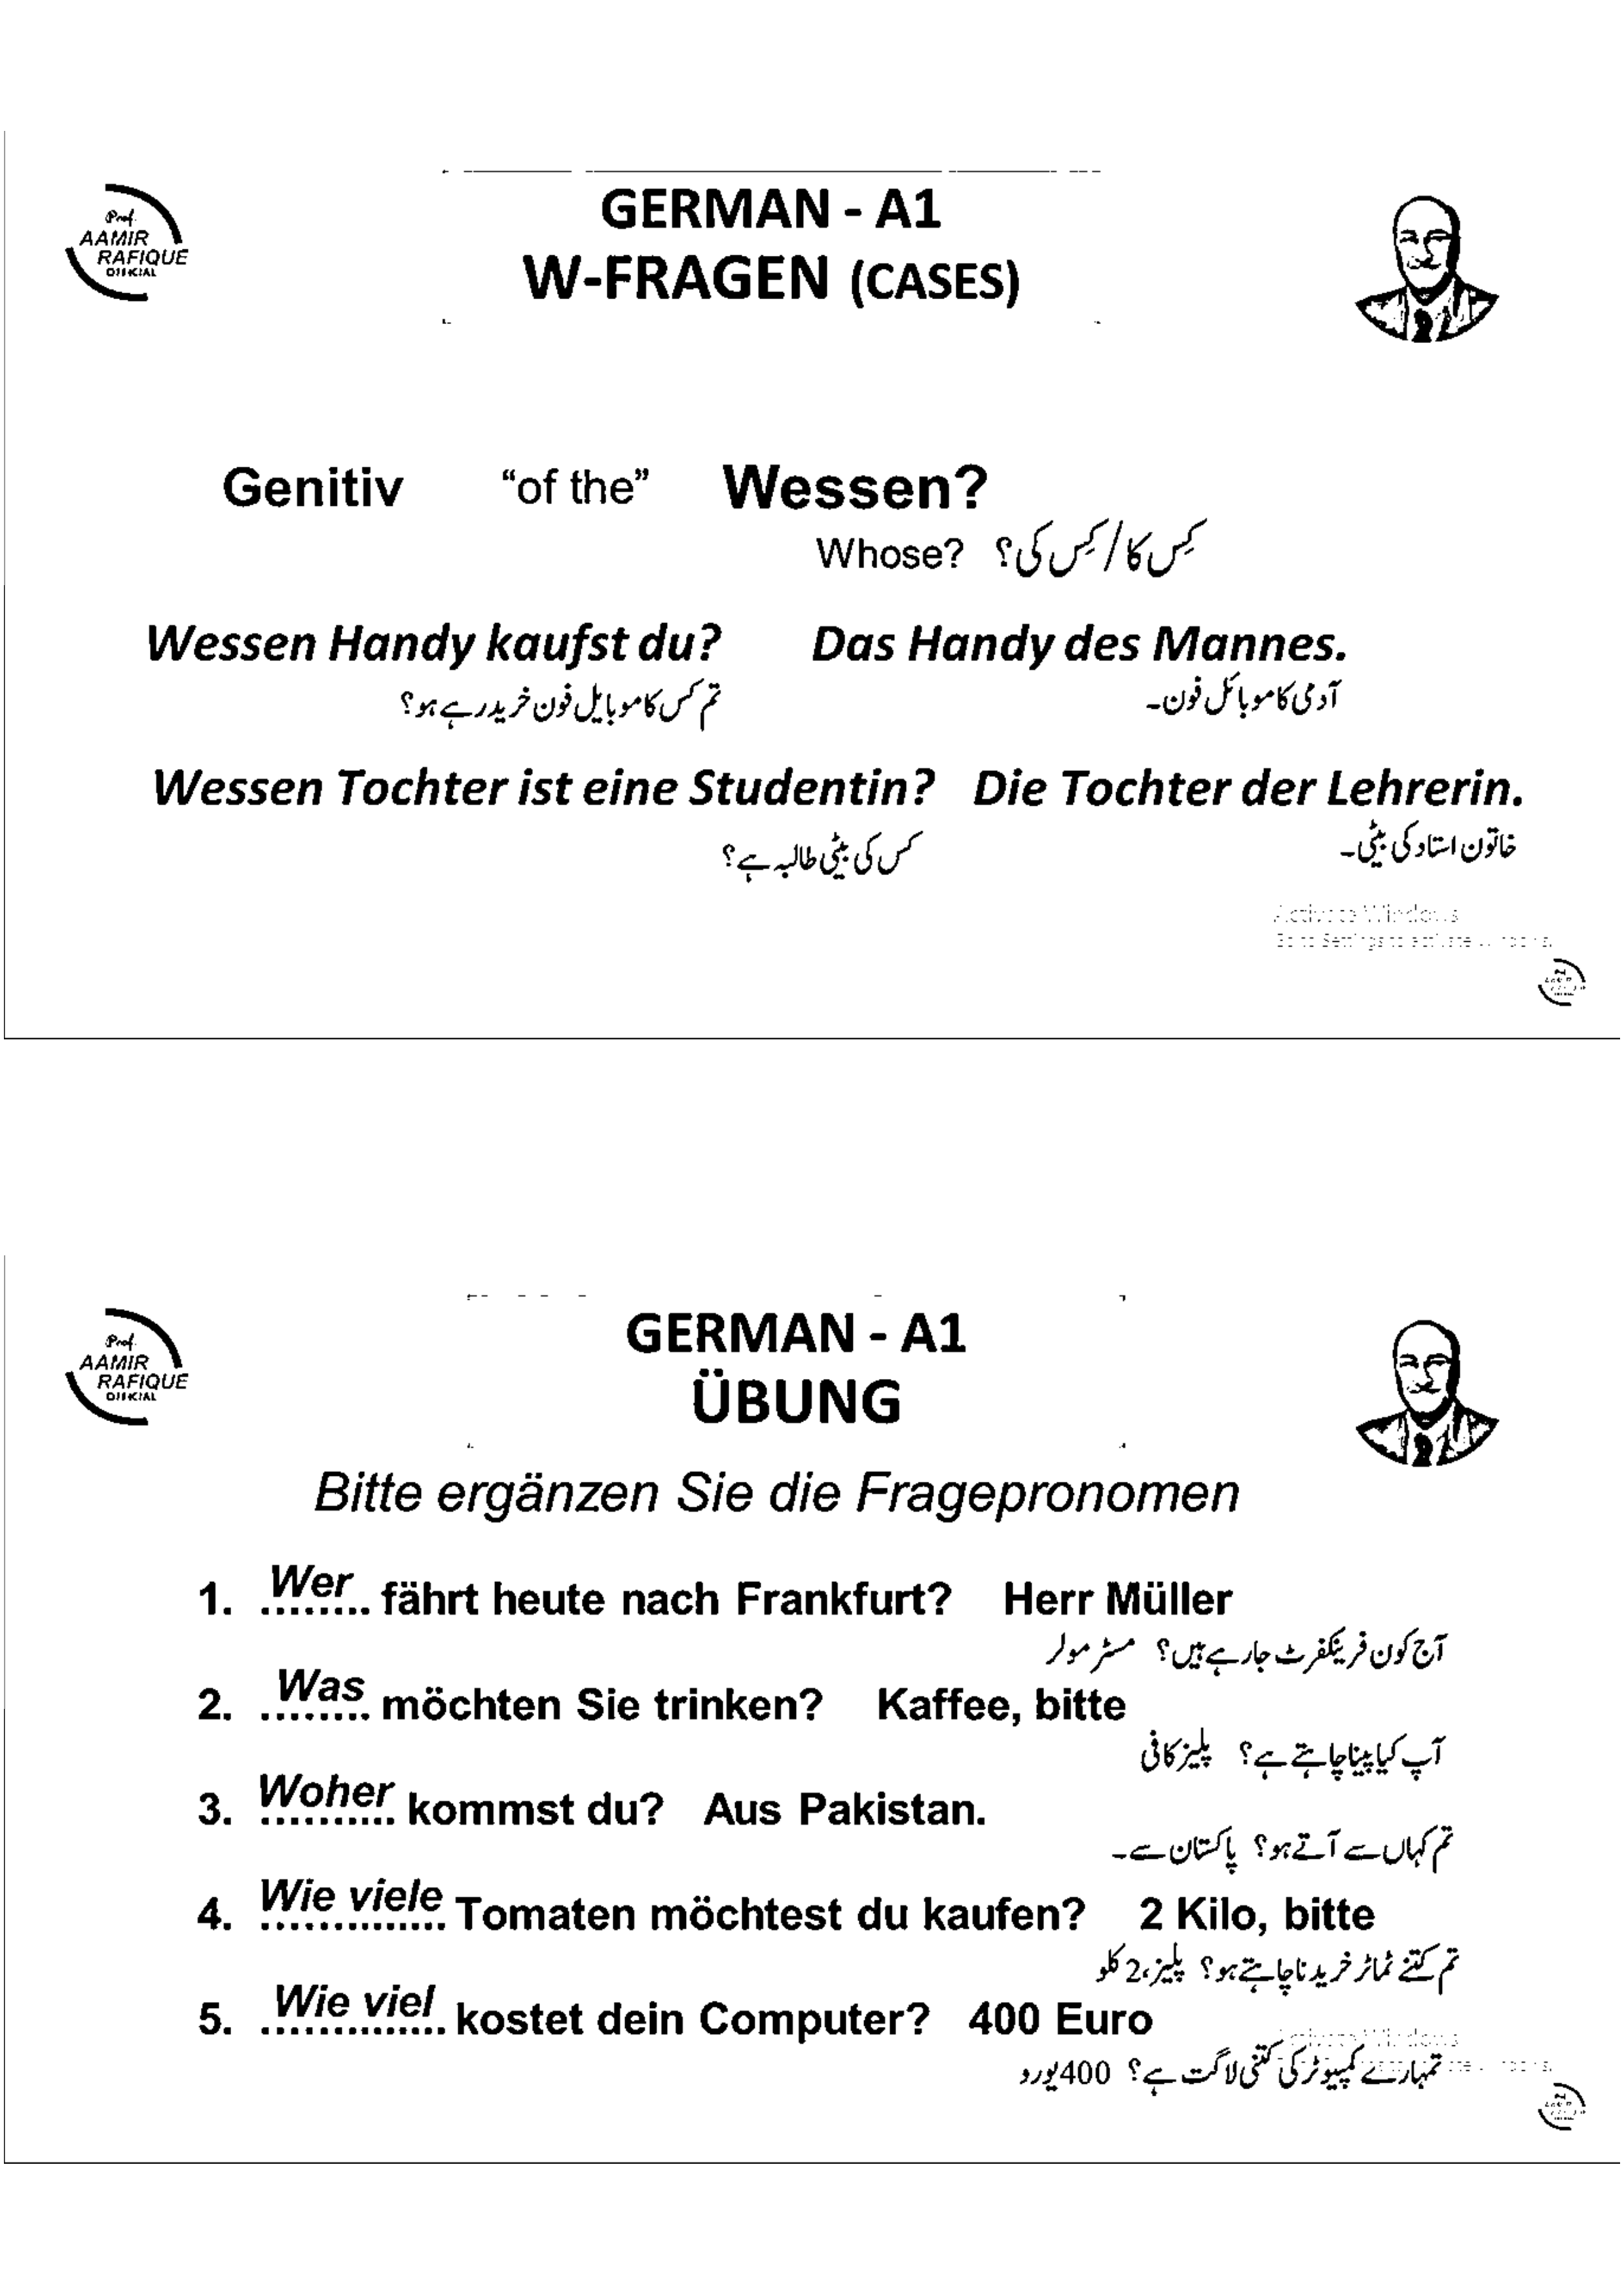 Prof.
AAMIR
RAFIQUE
OFFICIAL
GERMAN - A1
W-FRAGEN (CASES)
Genitiv “of the” Wessen?
Whose? کِس کا/کِس کی؟
Wessen Handy kaufst du? Das Handy des Mannes.
تم کس کا موبایل فون خرید رہے ہو؟ آدمی کا موبائل فون۔
Wessen Tochter ist eine Studentin? Die Tochter der Lehrerin.
کس کی بیٹی طالبہ ہے؟ خاتون استاد کی بیٹی۔
Activate Windows
Go to Settings to activate Windows.
Prof.
AAMIR
RAFIQUE
OFFICIAL
GERMAN - A1
ÜBUNG
Bitte ergänzen Sie die Fragepronomen
1. Wer fährt heute nach Frankfurt? Herr Müller
آج کون فرینکفرٹ جا رہے ہیں؟ مسٹر مولر
2. Was möchten Sie trinken? Kaffee, bitte
آپ کیا پینا چاہتے ہے؟ پلیز کافی
3. Woher kommst du? Aus Pakistan.
تم کہاں سے آتے ہو؟ پاکستان سے۔
4. Wie viele Tomaten möchtest du kaufen? 2 Kilo, bitte
تم کتنے ٹماٹر خریدنا چاہتے ہو؟ پلیز، 2 کلو
5. Wie viel kostet dein Computer? 400 Euro
Activate Windows
تمہارے کمپیوٹر کی کتنی لاگت ہے؟ 400 یورو